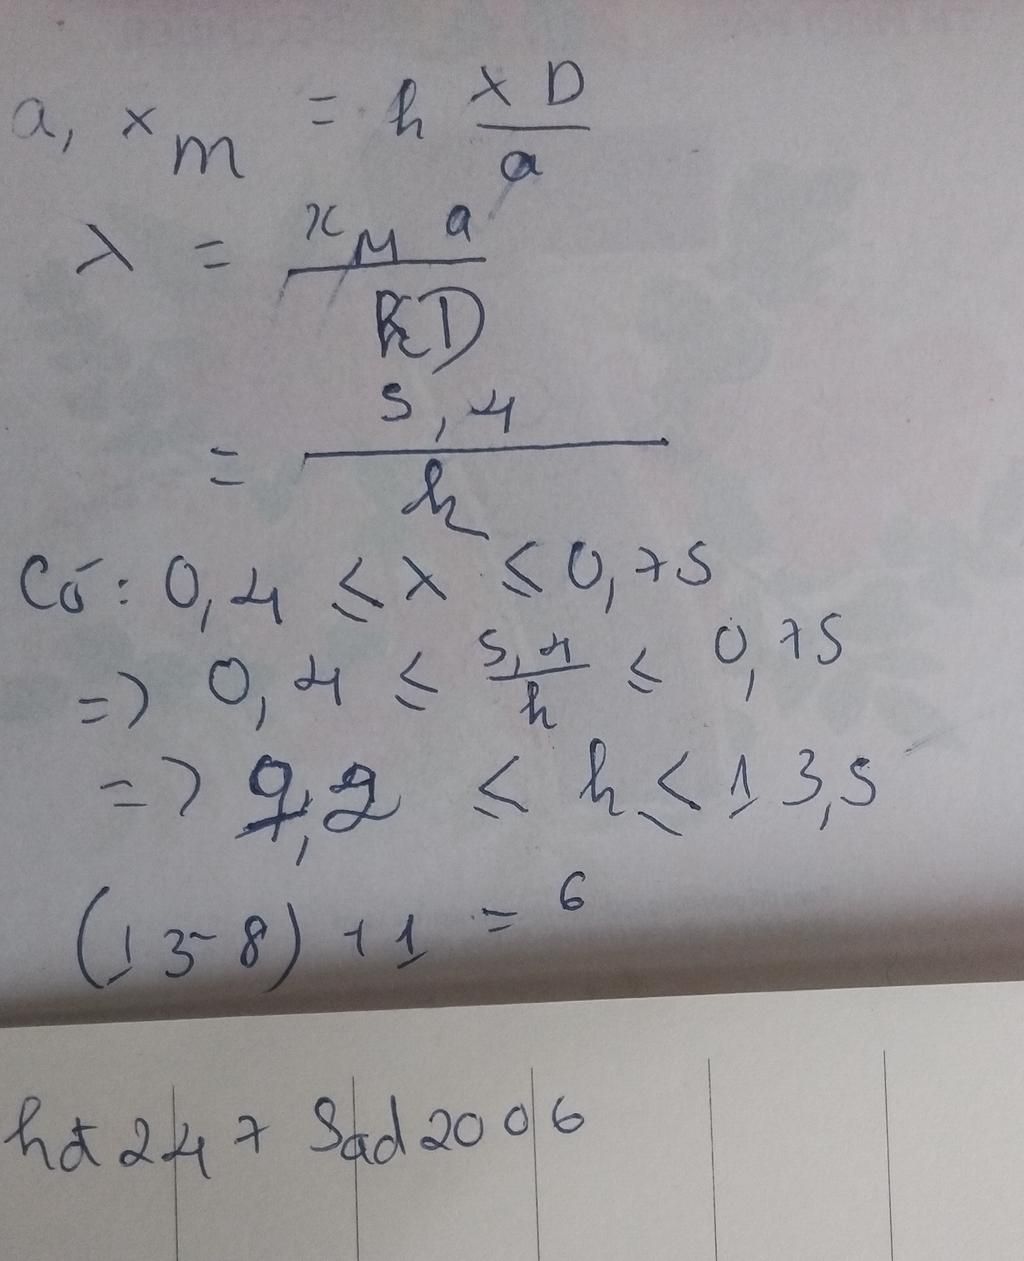 a, x_m = k λD/a
λ = x_M a / kD
= 5,4 / k
Có: 0,4 ≤ λ ≤ 0,75
=> 0,4 ≤ 5,4/k ≤ 0,75
=> 7,2 ≤ k ≤ 13,5
(13-8) + 1 = 6
hdt247 Sad2006